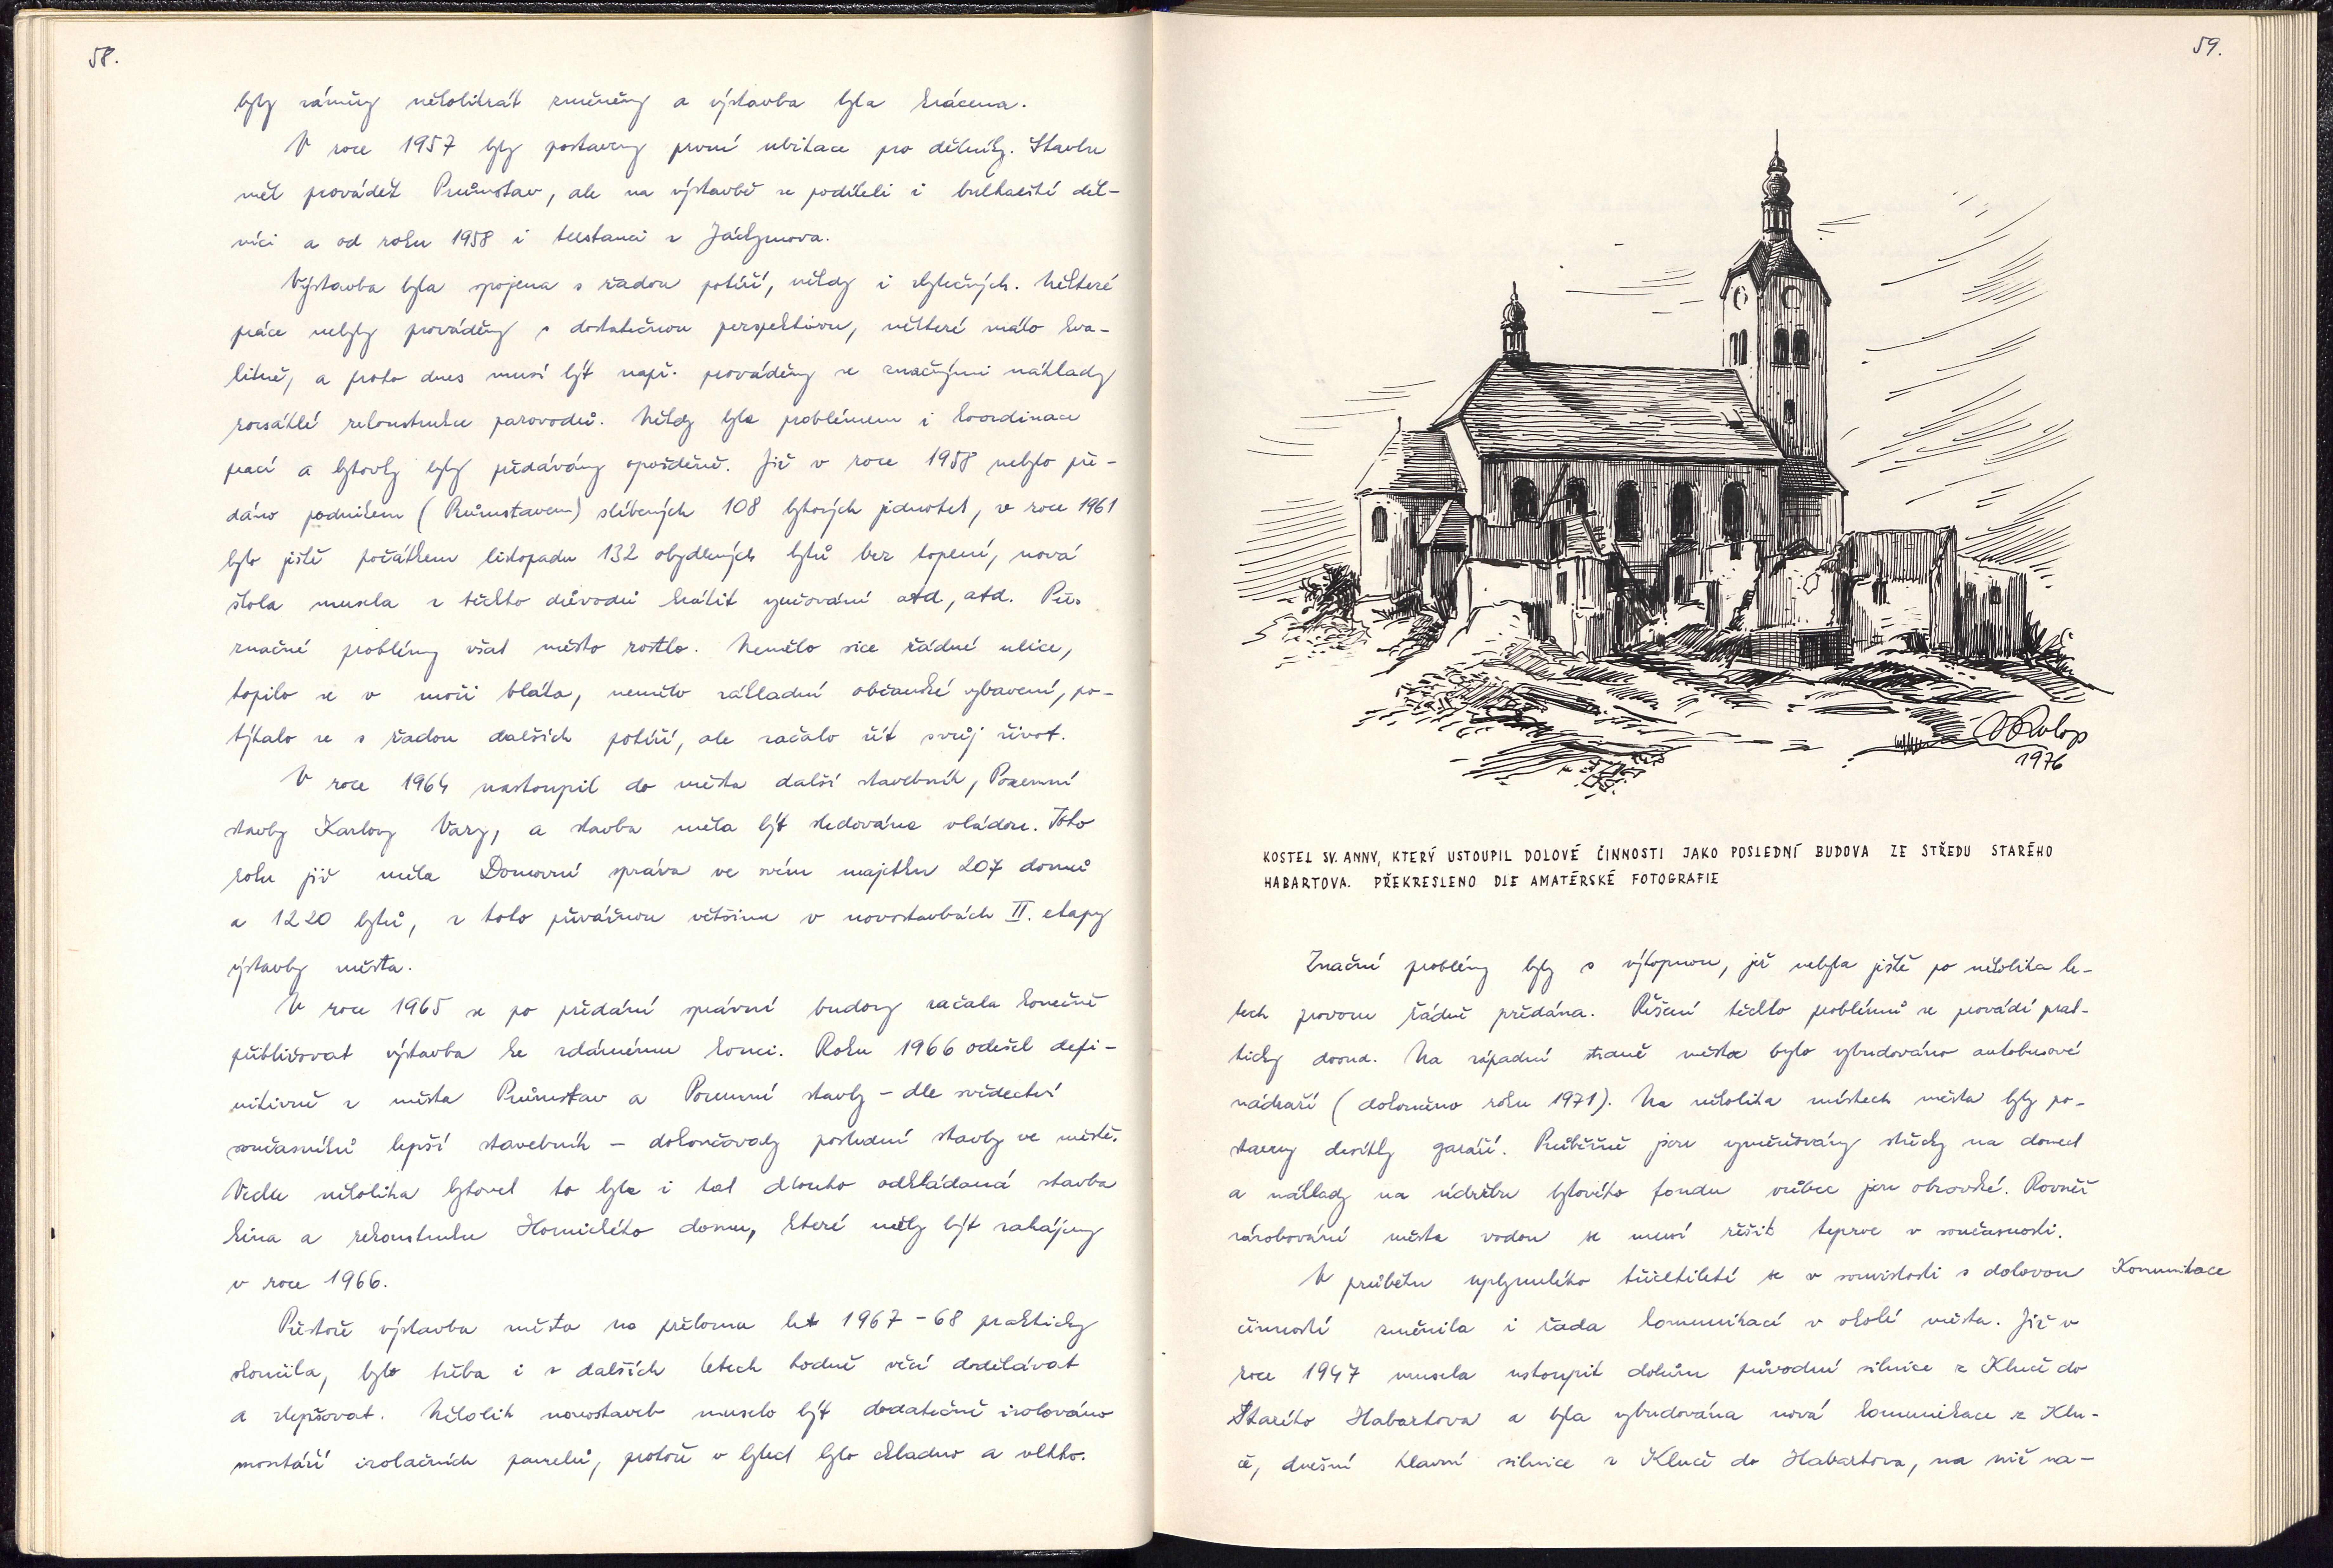 58.
byly záměry několikrát změněny a výstavba byla krácena.
V roce 1957 byly postaveny první ubikace pro dělníky. Stavbu
měl provádět Průmstav, ale na výstavbě se podíleli i bulharští děl-
níci a od roku 1958 i trestanci z Jáchymova.
Výstavba byla spojena s řadou potíží, někdy i zbytečných. Některé
práce nebyly prováděny s dostatečnou perspektivou, některé málo kva-
litně, a proto dnes musí být např. prováděny se značnými náklady
rozsáhlé rekonstrukce parovodů. Někdy byla problémem i koordinace
prací a bytovky byly předávány opožděně. Již v roce 1958 nebylo pře-
dáno podnikem (Průmstavem) slíbených 108 bytových jednotek, v roce 1961
bylo ještě počátkem listopadu 132 obydlených bytů bez topení, nová
škola musela z těchto důvodů krátit vyučování atd, atd. Přes
značné problémy však město rostlo. Nemělo sice řádné ulice,
topilo se v moři bláta, nemělo základní občanské vybavení, po-
týkalo se s řadou dalších potíží, ale začalo žít svůj život.
V roce 1964 nastoupil do města další stavebník, Pozemní
stavby Karlovy Vary, a stavba měla být sledována vládou. Toho
roku již měla Domovní správa ve svém majetku 207 domů
a 1220 bytů, z toho převážnou většinu v novostavbách II. etapy
výstavby města.
V roce 1965 se po předání správní budovy začala konečně
přibližovat výstavba ke zdárnému konci. Roku 1966 odešel defi-
nitivně z města Průmstav a Pozemní stavby - dle svědectví
současníků lepší stavebník - dokončovaly poslední stavby ve městě.
Vedle několika bytovek to byla i tak dlouho odkládaná stavba
kina a rekonstrukce Hornického domu, které měly být zahájeny
v roce 1966.
Přestože výstavba města na přelomu let 1967-68 prakticky
skončila, bylo třeba i v dalších letech hodně věcí dodělávat
a zlepšovat. Několik novostaveb muselo být dodatečně izolováno
montáží izolačních panelů, protože v bytech bylo chladno a vlhko.
59.
VRolop
1976
KOSTEL SV. ANNY, KTERÝ USTOUPIL DOLOVÉ ČINNOSTI JAKO POSLEDNÍ BUDOVA ZE STŘEDU STARÉHO
HABARTOVA. PŘEKRESLENO DLE AMATÉRSKÉ FOTOGRAFIE
Značné problémy byly s výtopnou, jež nebyla ještě po několika le-
tech provozu řádně předána. Řešení těchto problémů se provádí prak-
ticky dosud. Na západní straně města bylo vybudováno autobusové
nádraží (dokončeno roku 1971). Na několika místech města byly po-
staveny desítky garáží. Průběžně jsou vyměňovány střechy na domech
a náklady na údržbu bytového fondu vůbec jsou obrovské. Rovněž
zásobování města vodou se musí řešit teprve v současnosti.
V průběhu uplynulého třicetiletí se v souvislosti s dolovou
Komunikace
činností změnila i řada komunikací v okolí města. Již v
roce 1947 musela ustoupit dolům původní silnice z Kluče do
Starého Habartova a byla vybudována nová komunikace z Klu-
če, dnešní hlavní silnice z Kluče do Habartova, na níž na-